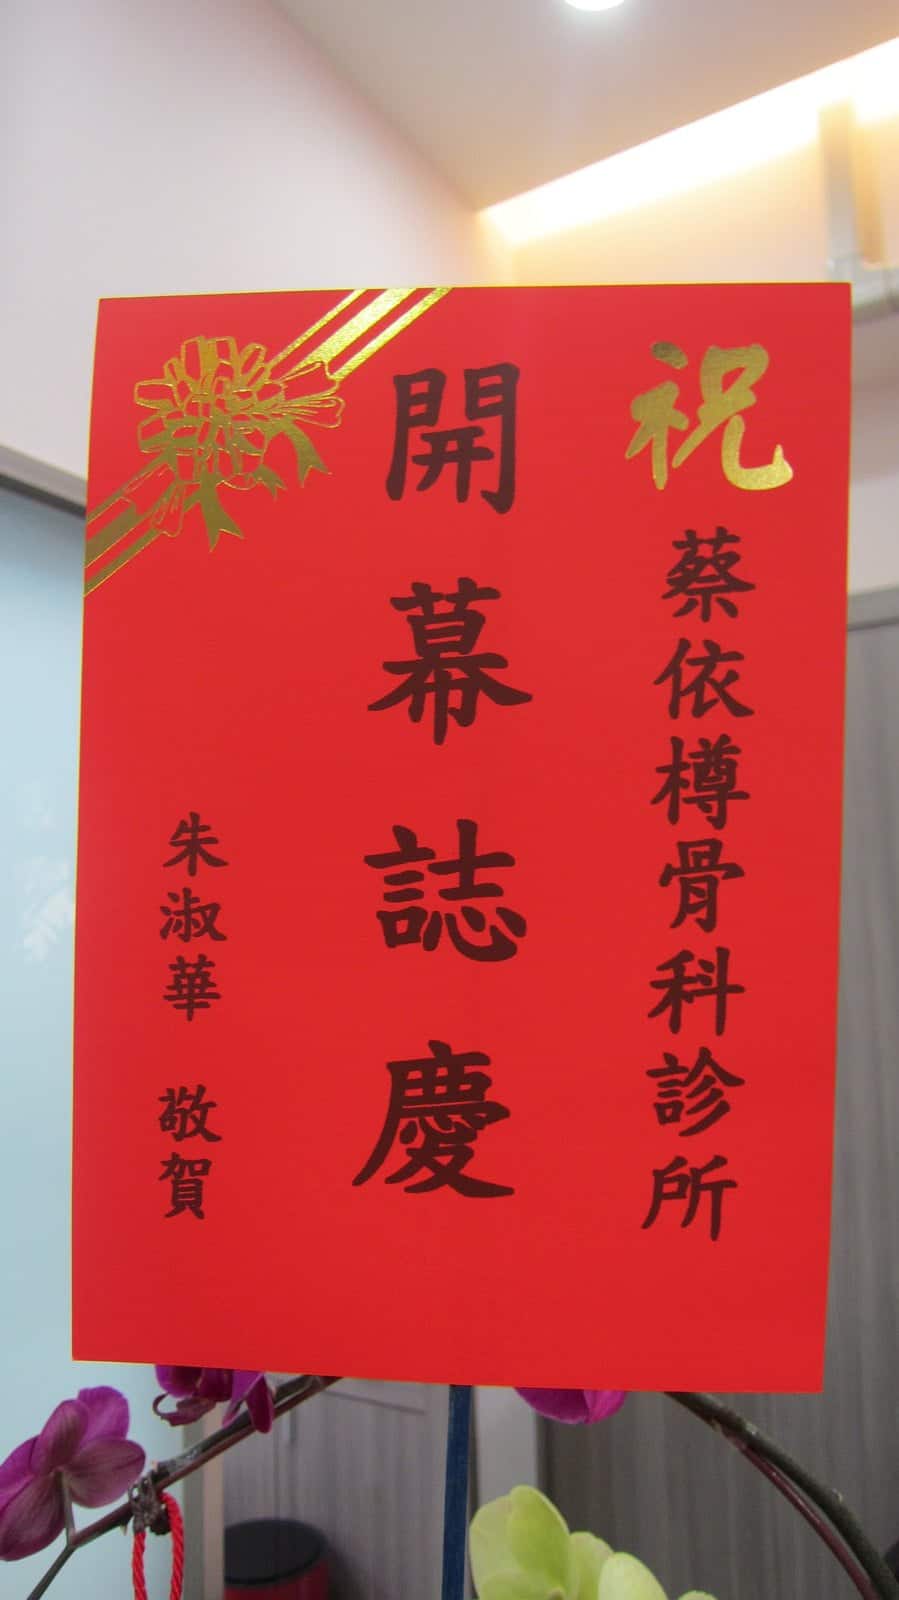 祝
蔡依樽骨科診所
開幕誌慶
朱淑華 敬賀